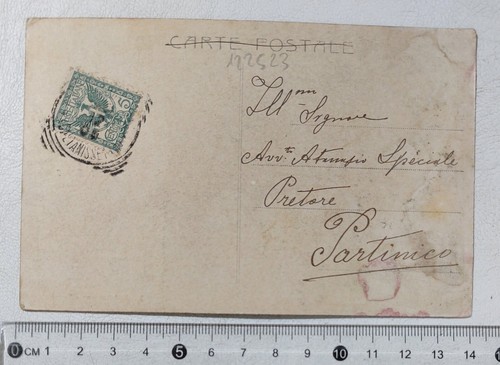 CARTE POSTALE
122523
Ill.mo
Signore
Avv.to Atanasio Speciale
Pretore
Partinico
0 CM 1 2 3 4 5 6 7 8 9 10 11 12 13 14